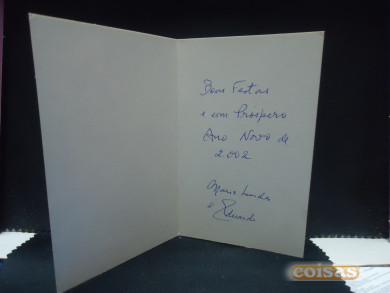 Boas Festas
e um Prospero
Ano Novo de
2002
Maria Lurdes
e Eduardo
coisas